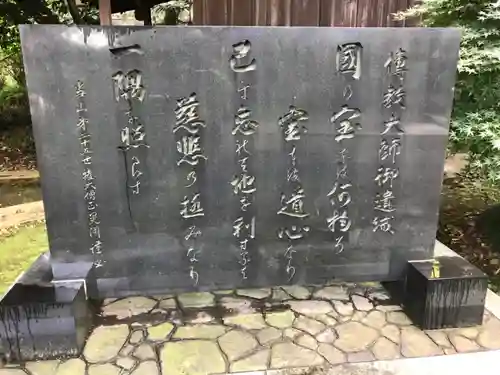 傳教大師御遺誡
國の宝とは何物ぞ
宝とは道心なり
己を忘れて他を利するは
慈悲の極みなり
一隅を照らす
大僧正